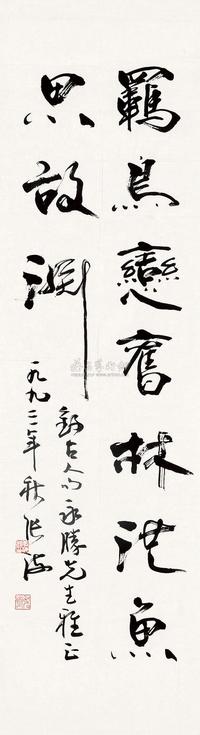 羈鳥戀舊林池魚
思故淵
錄古人句永勝先生雅正
一九九二年秋張海